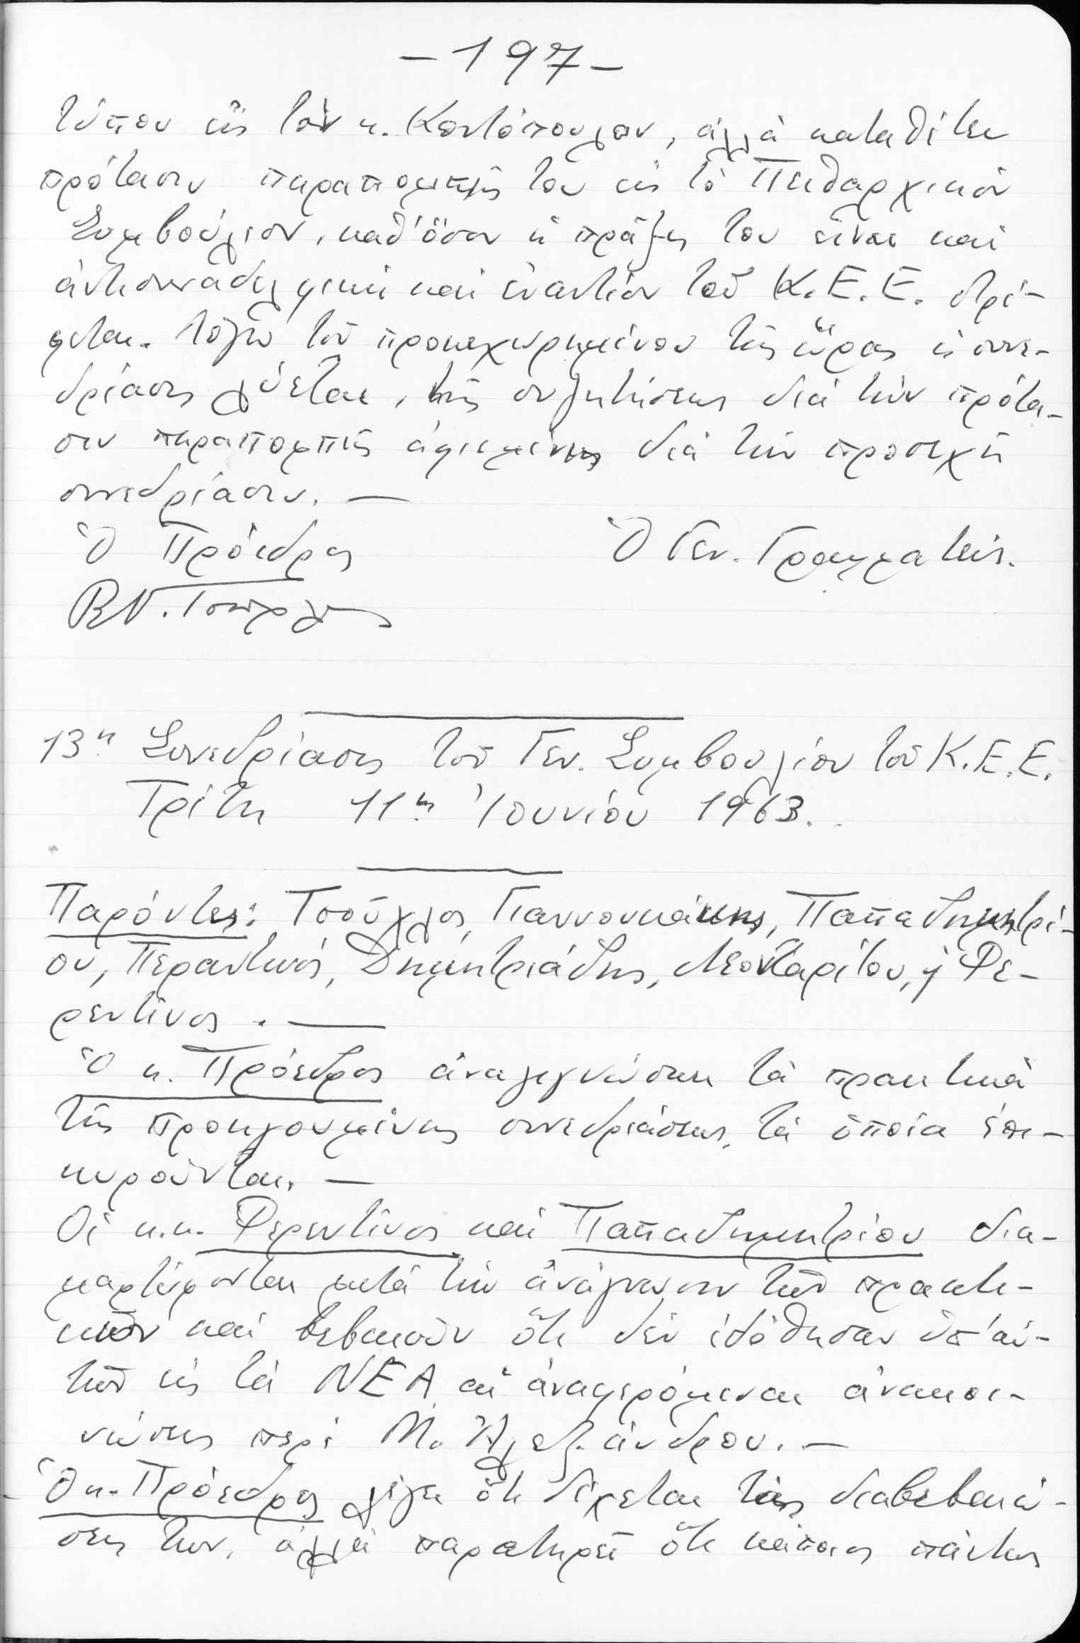 - 197 -
τύπου εἰς τὸν κ. Κοντόπουλον, ἀλλὰ καταθέτει
πρότασιν παραπομπῆς του εἰς τὸ Πειθαρχικὸν
Συμβούλιον, καθ' ὅσον ἡ πρᾶξις του εἶναι καὶ
ἀντισυναδελφικὴ καὶ ἐναντίον τοῦ Κ.Ε.Ε. στρέ-
φεται. Λόγῳ τοῦ προκεχωρημένου τῆς ὥρας ἡ συνε-
δρίασις λύεται, τῆς συζητήσεως διὰ τὴν πρότα-
σιν παραπομπῆς ἀφιεμένης διὰ τὴν προσεχῆ
συνεδρίασιν. —
Ὁ Πρόεδρος Ὁ Γεν. Γραμματεύς.
13η Συνεδρίασις τοῦ Γεν. Συμβουλίου τοῦ Κ.Ε.Ε.
Τρίτη 11η Ἰουνίου 1963.
Παρόντες: Τσοῦχλος, Γιαννουκάκης, Παπαδημητρί-
ου, Περαντινός, Δημητριάδης, Λεονταρίτου, ἡ Φε-
ρεντῖνος. —
Ὁ κ. Πρόεδρος ἀναγιγνώσκει τὰ πρακτικὰ
τῆς προηγουμένης συνεδριάσεως, τὰ ὁποῖα ἐπι-
κυροῦνται. —
Οἱ κ.κ. Φερεντῖνος καὶ Παπαδημητρίου δια-
μαρτύρονται μετὰ τὴν ἀνάγνωσιν τῶν πρακτι-
κῶν καὶ βεβαιοῦν ὅτι δὲν ἐδόθησαν ὑπ' αὐ-
τῶν εἰς τὰ ΝΕΑ αἱ ἀναφερόμεναι ἀνακοι-
νώσεις περὶ Μ. Ἀλεξάνδρου. —
Ὁ κ. Πρόεδρος λέγει ὅτι δέχεται τὰς διαβεβαιώ-
σεις των, ἀλλὰ παρατηρεῖ ὅτι κάποιος πάντως